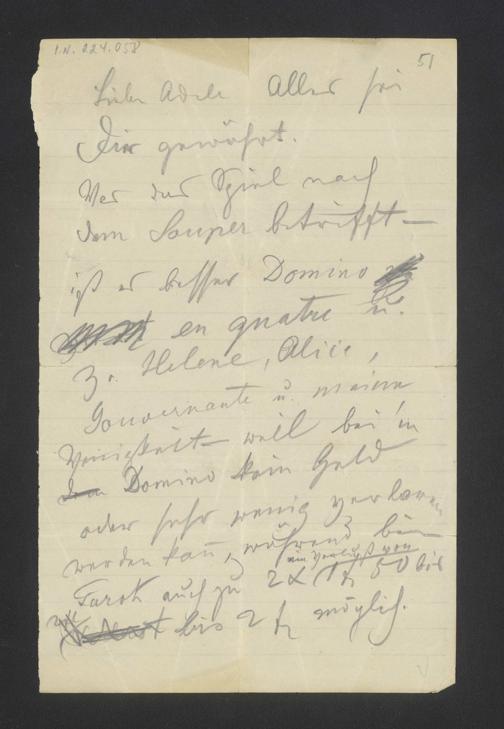 I.N. 224.058
51
Liebe Adele Alles sei
Dir gewährt.
Was das Spiel nach
dem Souper betrifft —
ist es besser Domino
en quatre u.
z. Helene, Alice,
Gouvernante u. meine
Wenigkeit — weil bei'm
Domino kein Geld
oder sehr wenig verloren
werden kann, während bei
ein Verlust von
Tarok auch zu 2 x 1 fl 50 bis
bis 2 fl möglich.